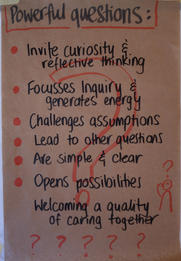 Powerful questions:
Invite curiosity &
reflective thinking
Focusses Inquiry &
generates energy
Challenges assumptions
Lead to other questions
Are simple & clear
Opens possibilities
Welcoming a quality
of caring together
? ? ? ? ?